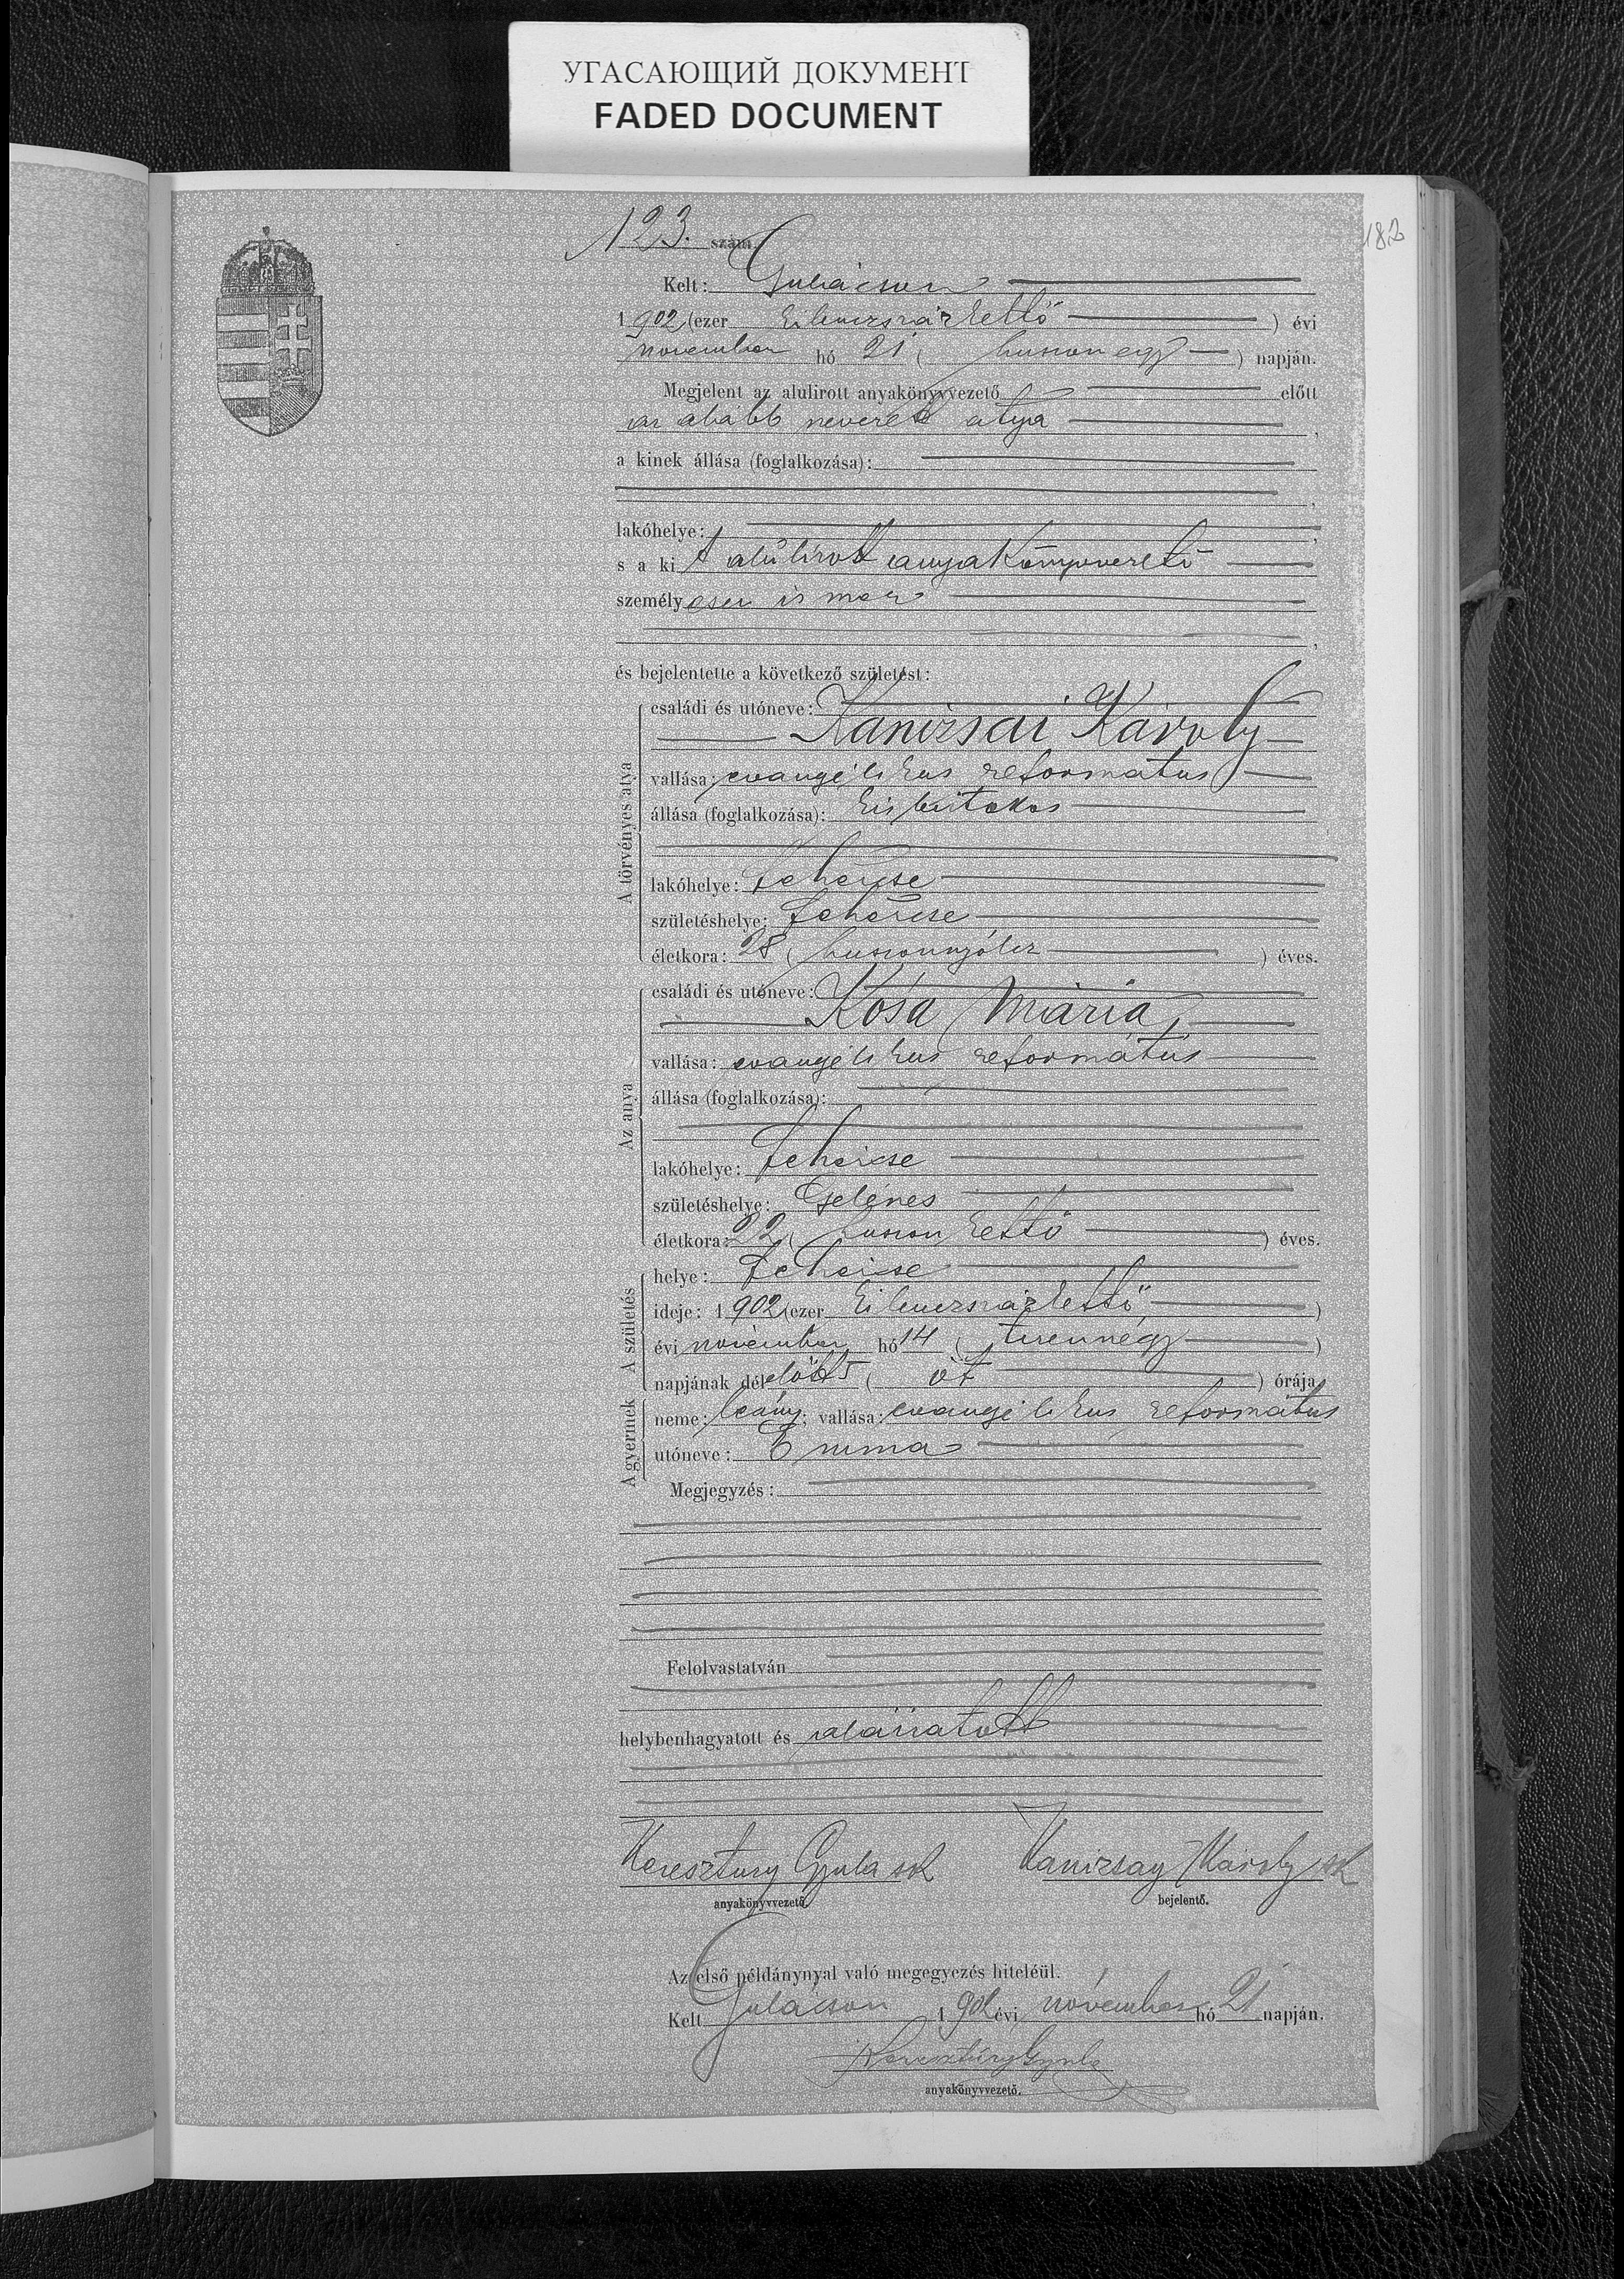 УГАСАЮЩИЙ ДОКУМЕНТ
FADED DOCUMENT
182
123. szám.
Kelt: Gulácson
1902 (ezer kilenczszázkettő) évi
november hó 21 (huszonegy) napján.
Megjelent az alulirott anyakönyvvezető előtt
az alább nevezett atya,
a kinek állása (foglalkozása):
lakóhelye:
s a ki t alúlírott anyakönyvvezető
személyesen ismer
és bejelentette a következő születést:
A törvényes atya
családi és utóneve:
Kanizsai Károly
vallása: evangélikus református
állása (foglalkozása): kisbirtokos
lakóhelye: Fehércse
születéshelye: Fehércse
életkora: 28 (huszonnyólcz) éves.
Az anya
családi és utóneve:
Kósa Mária,
vallása: evangélikus református
állása (foglalkozása):
lakóhelye: Fehércse
születéshelye: Gelénes
életkora: 22 (huszonkettő) éves.
A születés
helye: Fehércse
ideje: 1902 (ezer kilenczszázkettő)
évi november hó 14 (tizennégy)
napjának délelőtt 5 (öt) órája
A gyermek
neme: leány; vallása: evangélikus református
utóneve: Emma
Megjegyzés:
Felolvastatván
helybenhagyatott és aláiratott
Keresztury Gyula sk
Kanizsay Károly sk
anyakönyvvezető.
bejelentő.
Az első példánynyal való megegyezés hiteléül.
Kelt Gulácson 1902 évi november hó 21 napján.
Keresztúry Gyula
anyakönyvvezető.